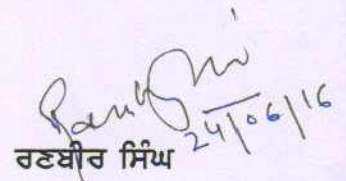 24/06/16
ਰਣਬੀਰ ਸਿੰਘ